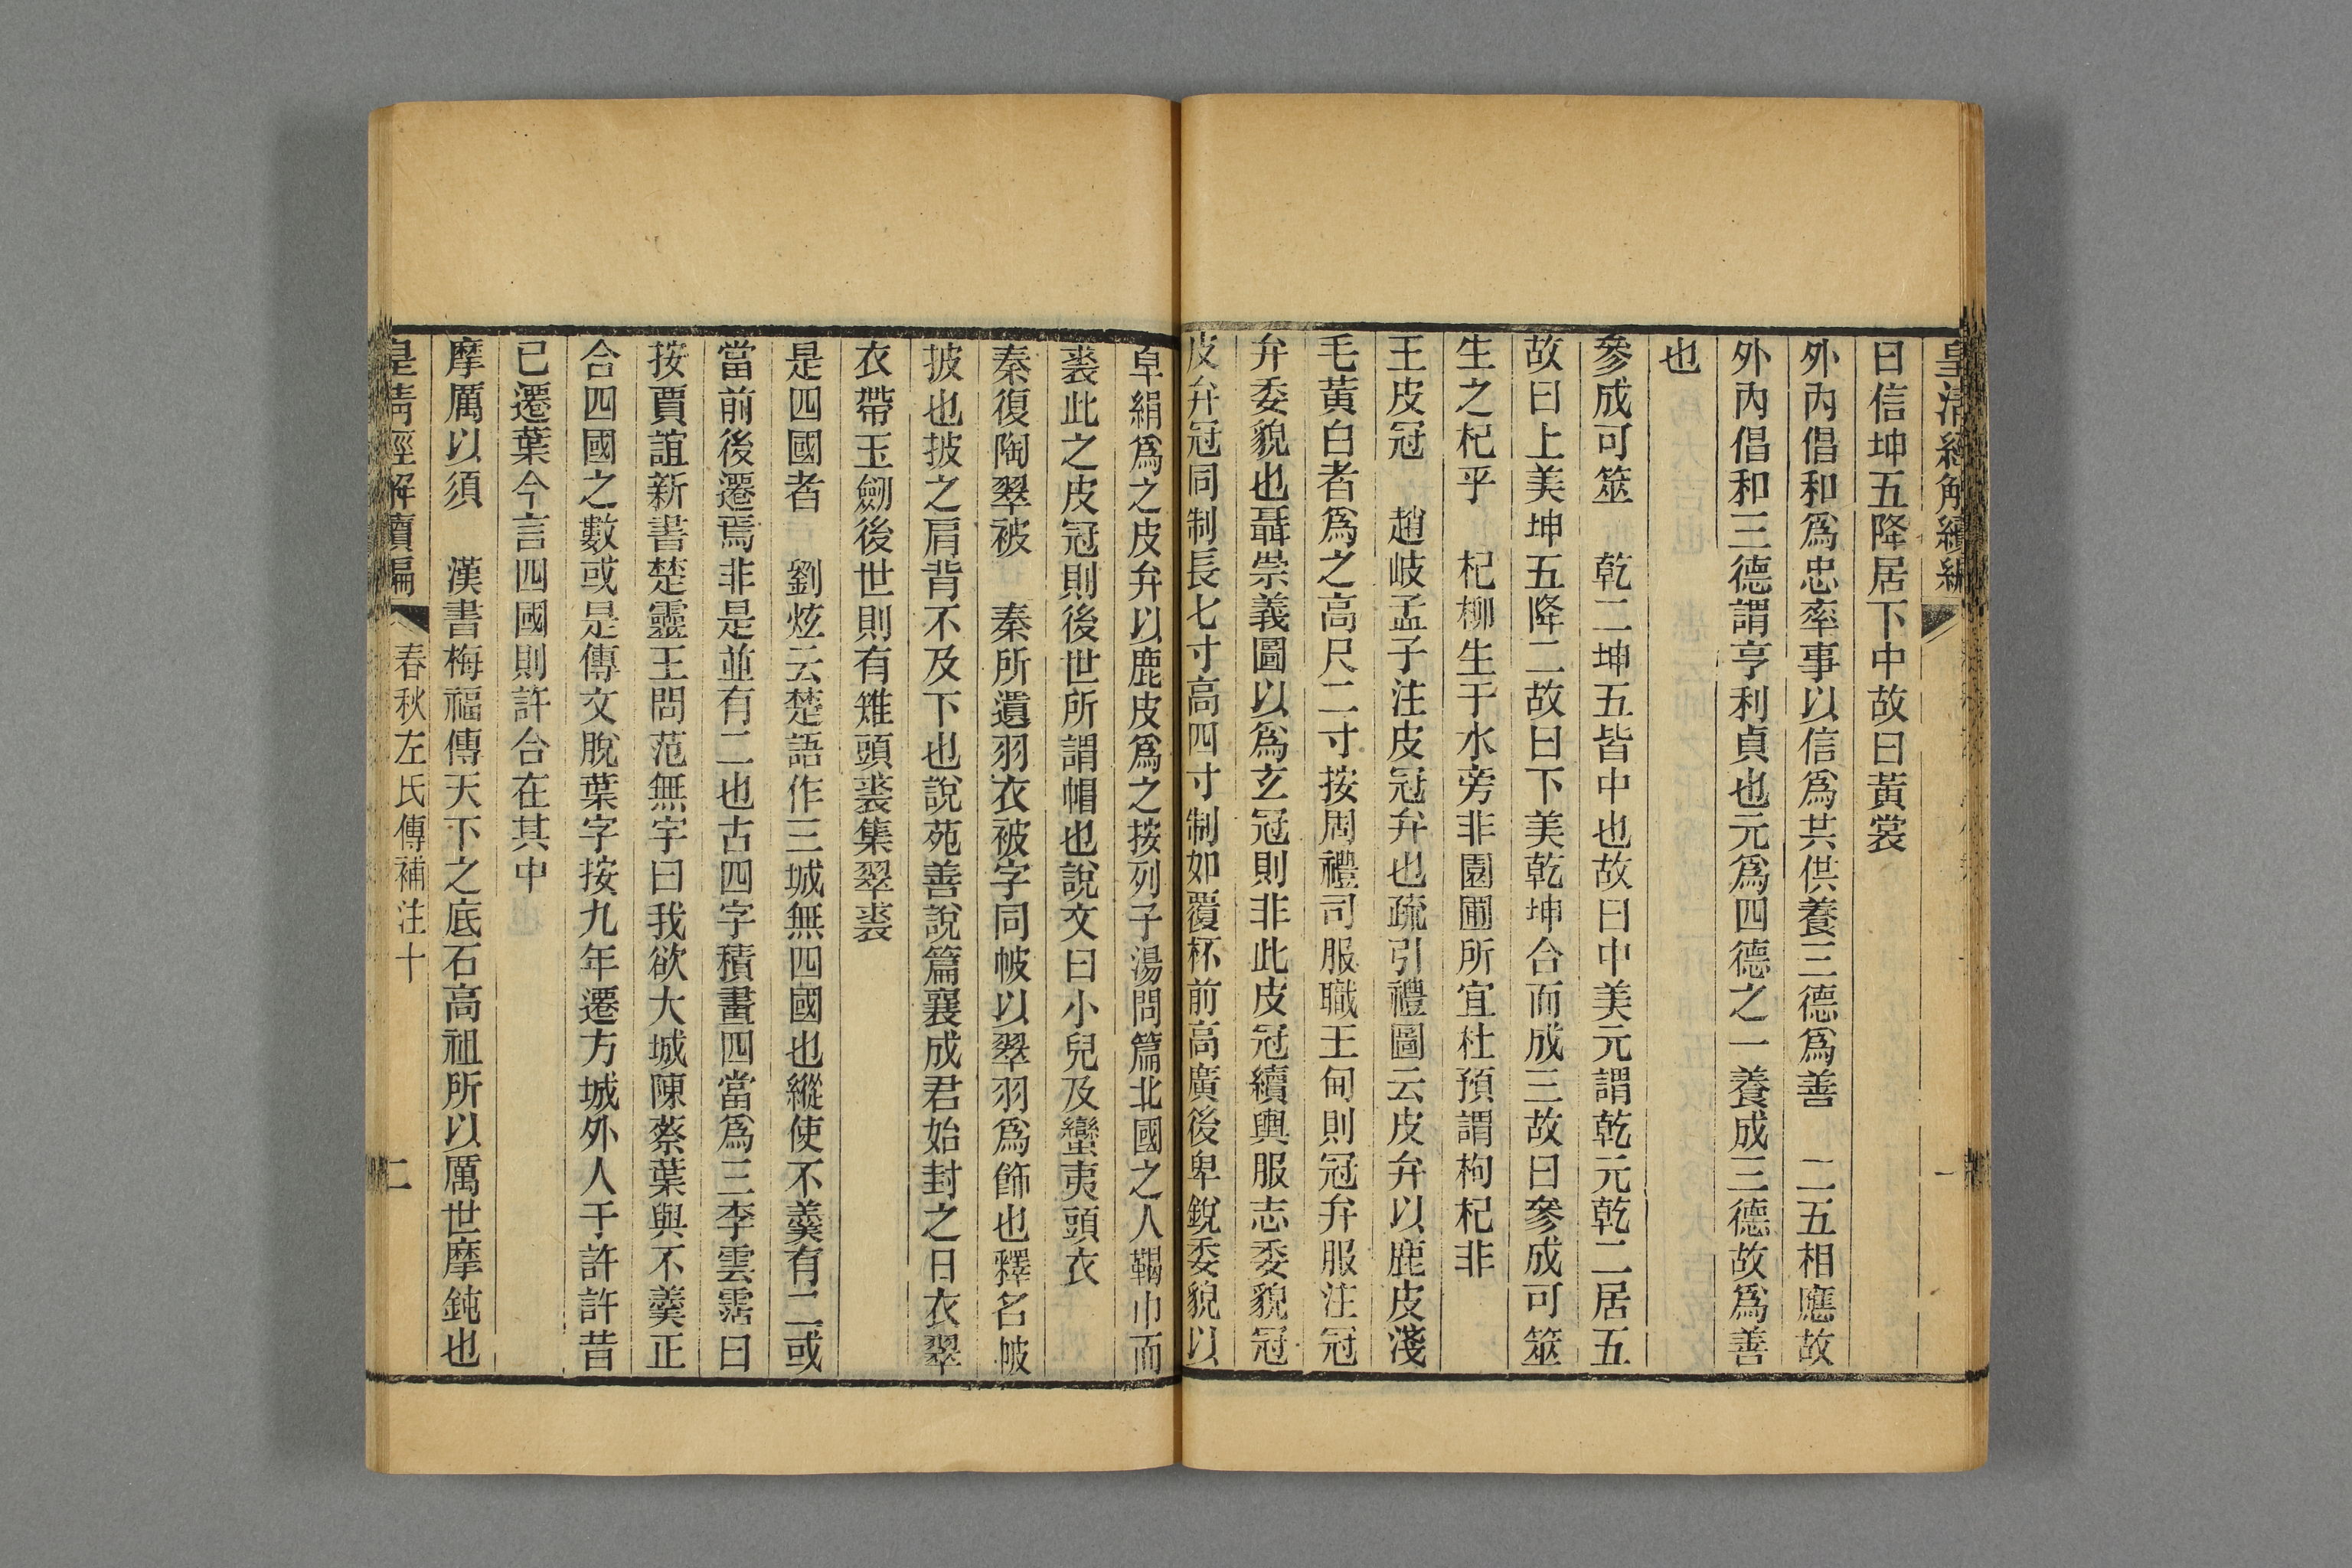 皇清經解續編
一
曰信坤五降居下中故曰黃裳
外內倡和爲忠率事以信爲共供養三德爲善　二五相應故
外內倡和三德謂亨利貞也元爲四德之一養成三德故爲善
也
參成可筮　乾二坤五皆中也故曰中美元謂乾元乾二居五
故曰上美坤五降二故曰下美乾坤合而成三故曰參成可筮
生之杞乎　杞柳生于水旁非園圃所宜杜預謂枸杞非
王皮冠　趙岐孟子注皮冠弁也疏引禮圖云皮弁以鹿皮淺
毛黃白者爲之高尺二寸按周禮司服職王甸則冠弁服注冠
弁委貌也聶崇義圖以爲玄冠則非此皮冠續輿服志委貌冠
皮弁冠同制長七寸高四寸制如覆杯前高廣後卑銳委貌以
皁絹爲之皮弁以鹿皮爲之按列子湯問篇北國之人鞨巾而
裘此之皮冠則後世所謂帽也說文曰小兒及蠻夷頭衣
秦復陶翠被　秦所遺羽衣被字同帔以翠羽爲飾也釋名帔
披也披之肩背不及下也說苑善說篇襄成君始封之日衣翠
衣帶玉劒後世則有雉頭裘集翠裘
是四國者　劉炫云楚語作三城無四國也縱使不羹有二或
當前後遷焉非是並有二也古四字積畫四當爲三李雲霑曰
按賈誼新書楚靈王問范無宇曰我欲大城陳蔡葉與不羹正
合四國之數或是傳文脫葉字按九年遷方城外人于許許昔
已遷葉今言四國則許合在其中
摩厲以須　漢書梅福傳天下之底石高祖所以厲世摩鈍也
皇清經解續編
春秋左氏傳補注十
二